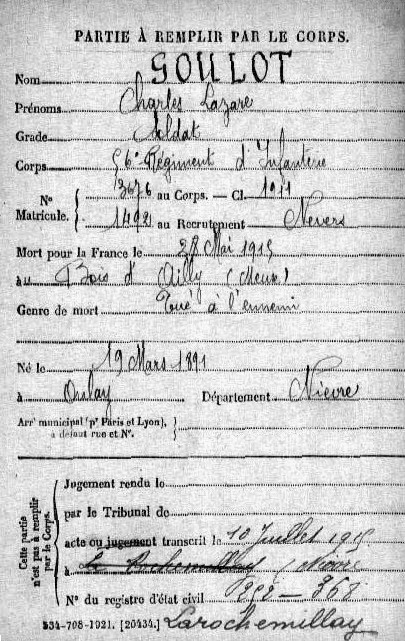 PARTIE À REMPLIR PAR LE CORPS.
Nom GOULOT
Prénoms Charles Lazare
Grade Soldat
Corps 56e Régiment d'Infanterie
3676 au Corps. — Cl. 1911
N° Matricule. 1492 au Recrutement Nevers
Mort pour la France le 28 Mai 1915
à au Bois d'Ailly (Meuse)
Genre de mort Tué à l'ennemi
Né le 19 Mars 1891
à Onlay Département Nièvre
Arrt municipal (pr Paris et Lyon),
à défaut rue et N°.
Cette partie n'est pas à remplir par le Corps.
Jugement rendu le
par le Tribunal de
acte ou jugement transcrit le 10 Juillet 1915
à la Rochemillay (Nièvre
N° du registre d'état civil 368
534-708-1921. [20434.] Larochemillay